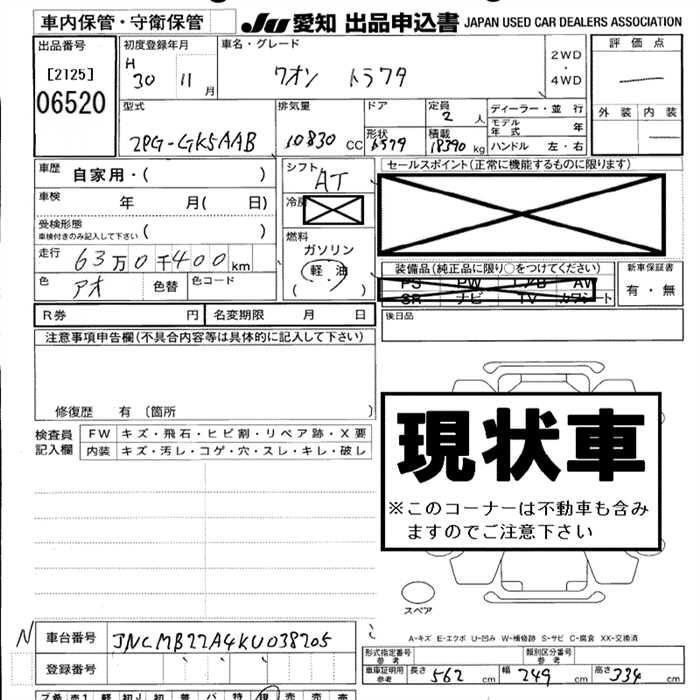 車内保管・守衛保管 JU 愛知 出品申込書 JAPAN USED CAR DEALERS ASSOCIATION
出品番号 [2125] 06520
初度登録年月 H 30 11 月
車名・グレード クオン トラフタ
2WD ・ 4WD
評価点
外装 内装
型式 2PG-GK5AAB
排気量 10830 CC
ドア
形状 トラフタ
定員 2 人
積載 18390 kg
ディーラー・並行
モデル年式 年
ハンドル 左・右
車歴 自家用・( )
車検 年 月( 日)
受検形態 ( )
車検付きのみ記入して下さい
走行 63万0千400km
色 アオ 色替 色コード
シフト AT
冷房
燃料 ガソリン 軽油 ( ・ )
セールスポイント(正常に機能するものに限ります)
装備品(純正品に限り○をつけてください)
PS PW エアB AW
SR ナビ TV カワシート
新車保証書 有・無
R券 円 名変期限 月 日
後日品
注意事項申告欄(不具合内容等は具体的に記入して下さい)
修復歴 有 〔箇所 〕
検査員記入欄
FW キズ・飛石・ヒビ割・リペア跡・X要
内装 キズ・汚レ・コゲ・穴・スレ・キレ・破レ
現状車
※このコーナーは不動車も含み
ますのでご注意下さい
スペア
A-キズ E-エクボ U-凹み W-補修跡 S-サビ C-腐食 XX-交換済
N 車台番号 JNCMB22A4KU038205
登録番号
形式指定番号 参考 類別区分番号 参考
車庫証明用参考 長さ 562 cm 幅 249 cm 高さ 334 cm